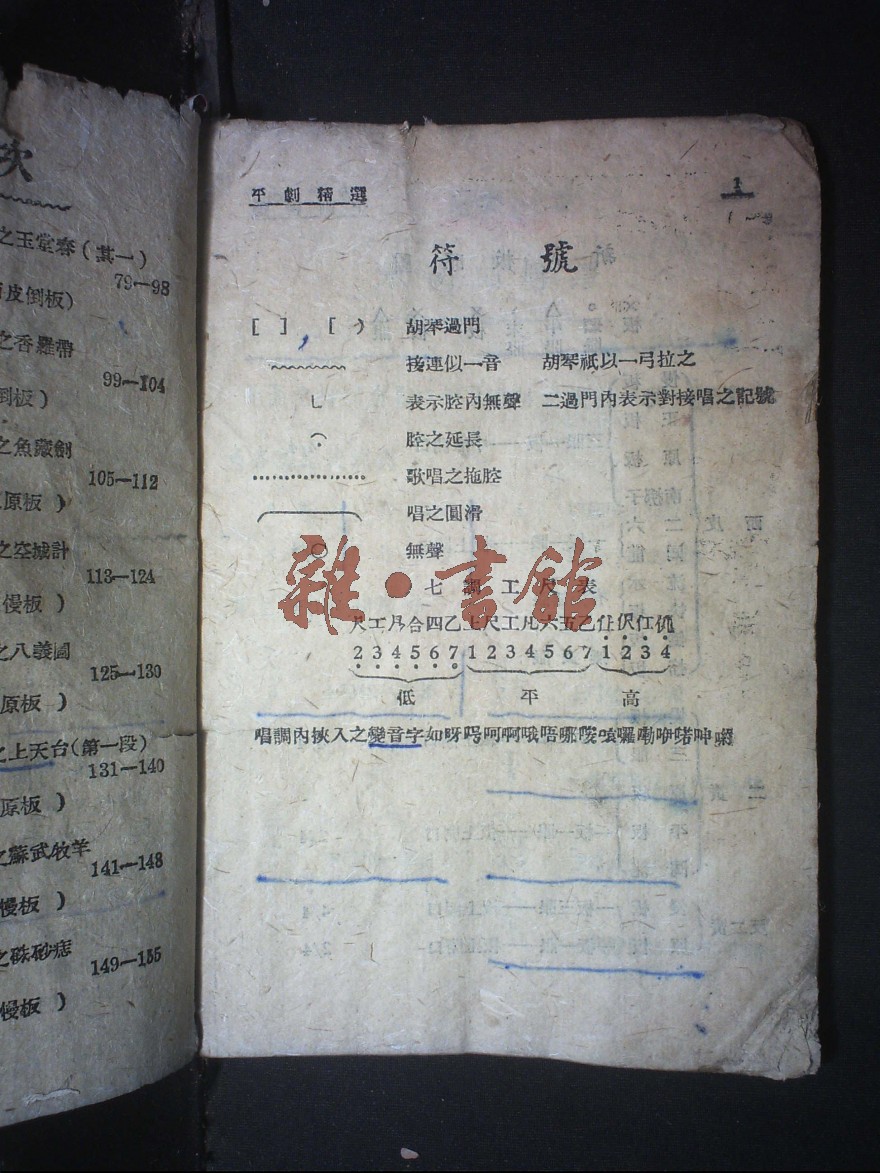 次
之玉堂春（其一）
79—98
皮倒板）
之香羅帶
99—104
倒板）
之魚藏劍
105—112
原板）
之空城計
113—124
慢板）
之八義圖
125—130
原板）
之上天台（第一段）
131—140
原板）
之蘇武牧羊
141—148
慢板）
之硃砂痣
149—155
慢板）
平劇精選
1
符號
[ ] , [ ) 胡琴過門
接連似一音 胡琴祇以一弓拉之
表示腔內無聲 二過門內表示對接唱之記號
腔之延長
歌唱之拖腔
唱之圓滑
無聲
七調工尺表
尺工凡合四乙上尺工凡六五乙仩伬仜
2 3 4 5 6 7 1 2 3 4 5 6 7 1 2 3 4
低 平 高
唱調內挾入之變音字如呀呵啊哦唔哪囉
雜·書館